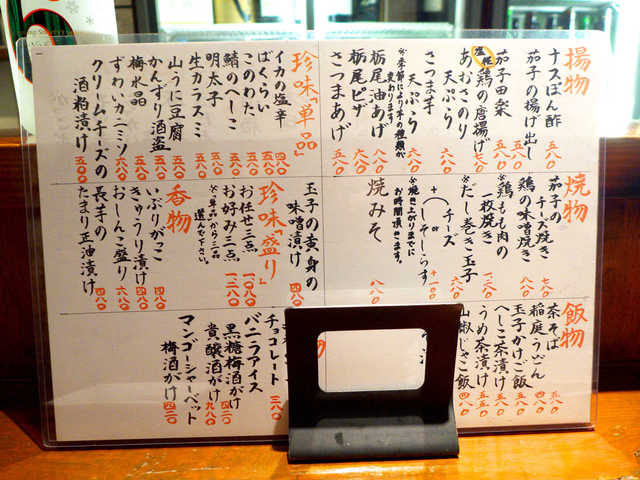 揚物
ナスぽん酢 五八〇
茄子の揚げ出し 五八〇
茄子田楽 五八〇
塩麹鶏の唐揚げ 七八〇
あおさのり
天ぷら 六八〇
さつま芋
天ぷら 六八〇
※季節により芋の種類が
変わります。
栃尾油あげ 八八〇
栃尾ピザ 八八〇
さつまあげ 五八〇
珍味「単品」
イカの塩辛 四八〇
ばくらい 五八〇
このわた 五八〇
鯖のへしこ 五八〇
明太子 五八〇
生カラスミ 五八〇
山うに豆腐 五八〇
かんずり酒盗 五八〇
梅水晶 五八〇
ずわいカニミソ 六八〇
クリームチーズの
酒粕漬け 五八〇
焼物
茄子の
チーズ焼き 七八〇
鶏の味噌焼き 八八〇
※鶏もも肉の
一枚焼き 一二八〇
※だし巻き玉子 六八〇
+(チーズ or しそしらす) +一〇〇
※焼き上がりまでに
お時間頂きます。
焼みそ 八八〇
玉子の黄身の
味噌漬け 三八〇
珍味「盛り」
お任せ三点 一〇八〇
お好み三点 一二八〇
※「単品」から三品
選んで下さい。
香物
いぶりがっこ 四八〇
きゅうり漬け 四八〇
おしんこ盛り 六八〇
長芋の
たまり正油漬け 四八〇
飯物
茶そば 五八〇
稲庭うどん 四八〇
玉子かけご飯 五八〇
へしこ茶漬け 五八〇
うめ茶漬け 五五〇
山椒じゃこ飯 四八〇
チョコレート 三八〇
バニラアイス
黒糖梅酒がけ 四三〇
貴醸酒がけ 九八〇
マンゴーシャーベット
梅酒がけ 四三〇